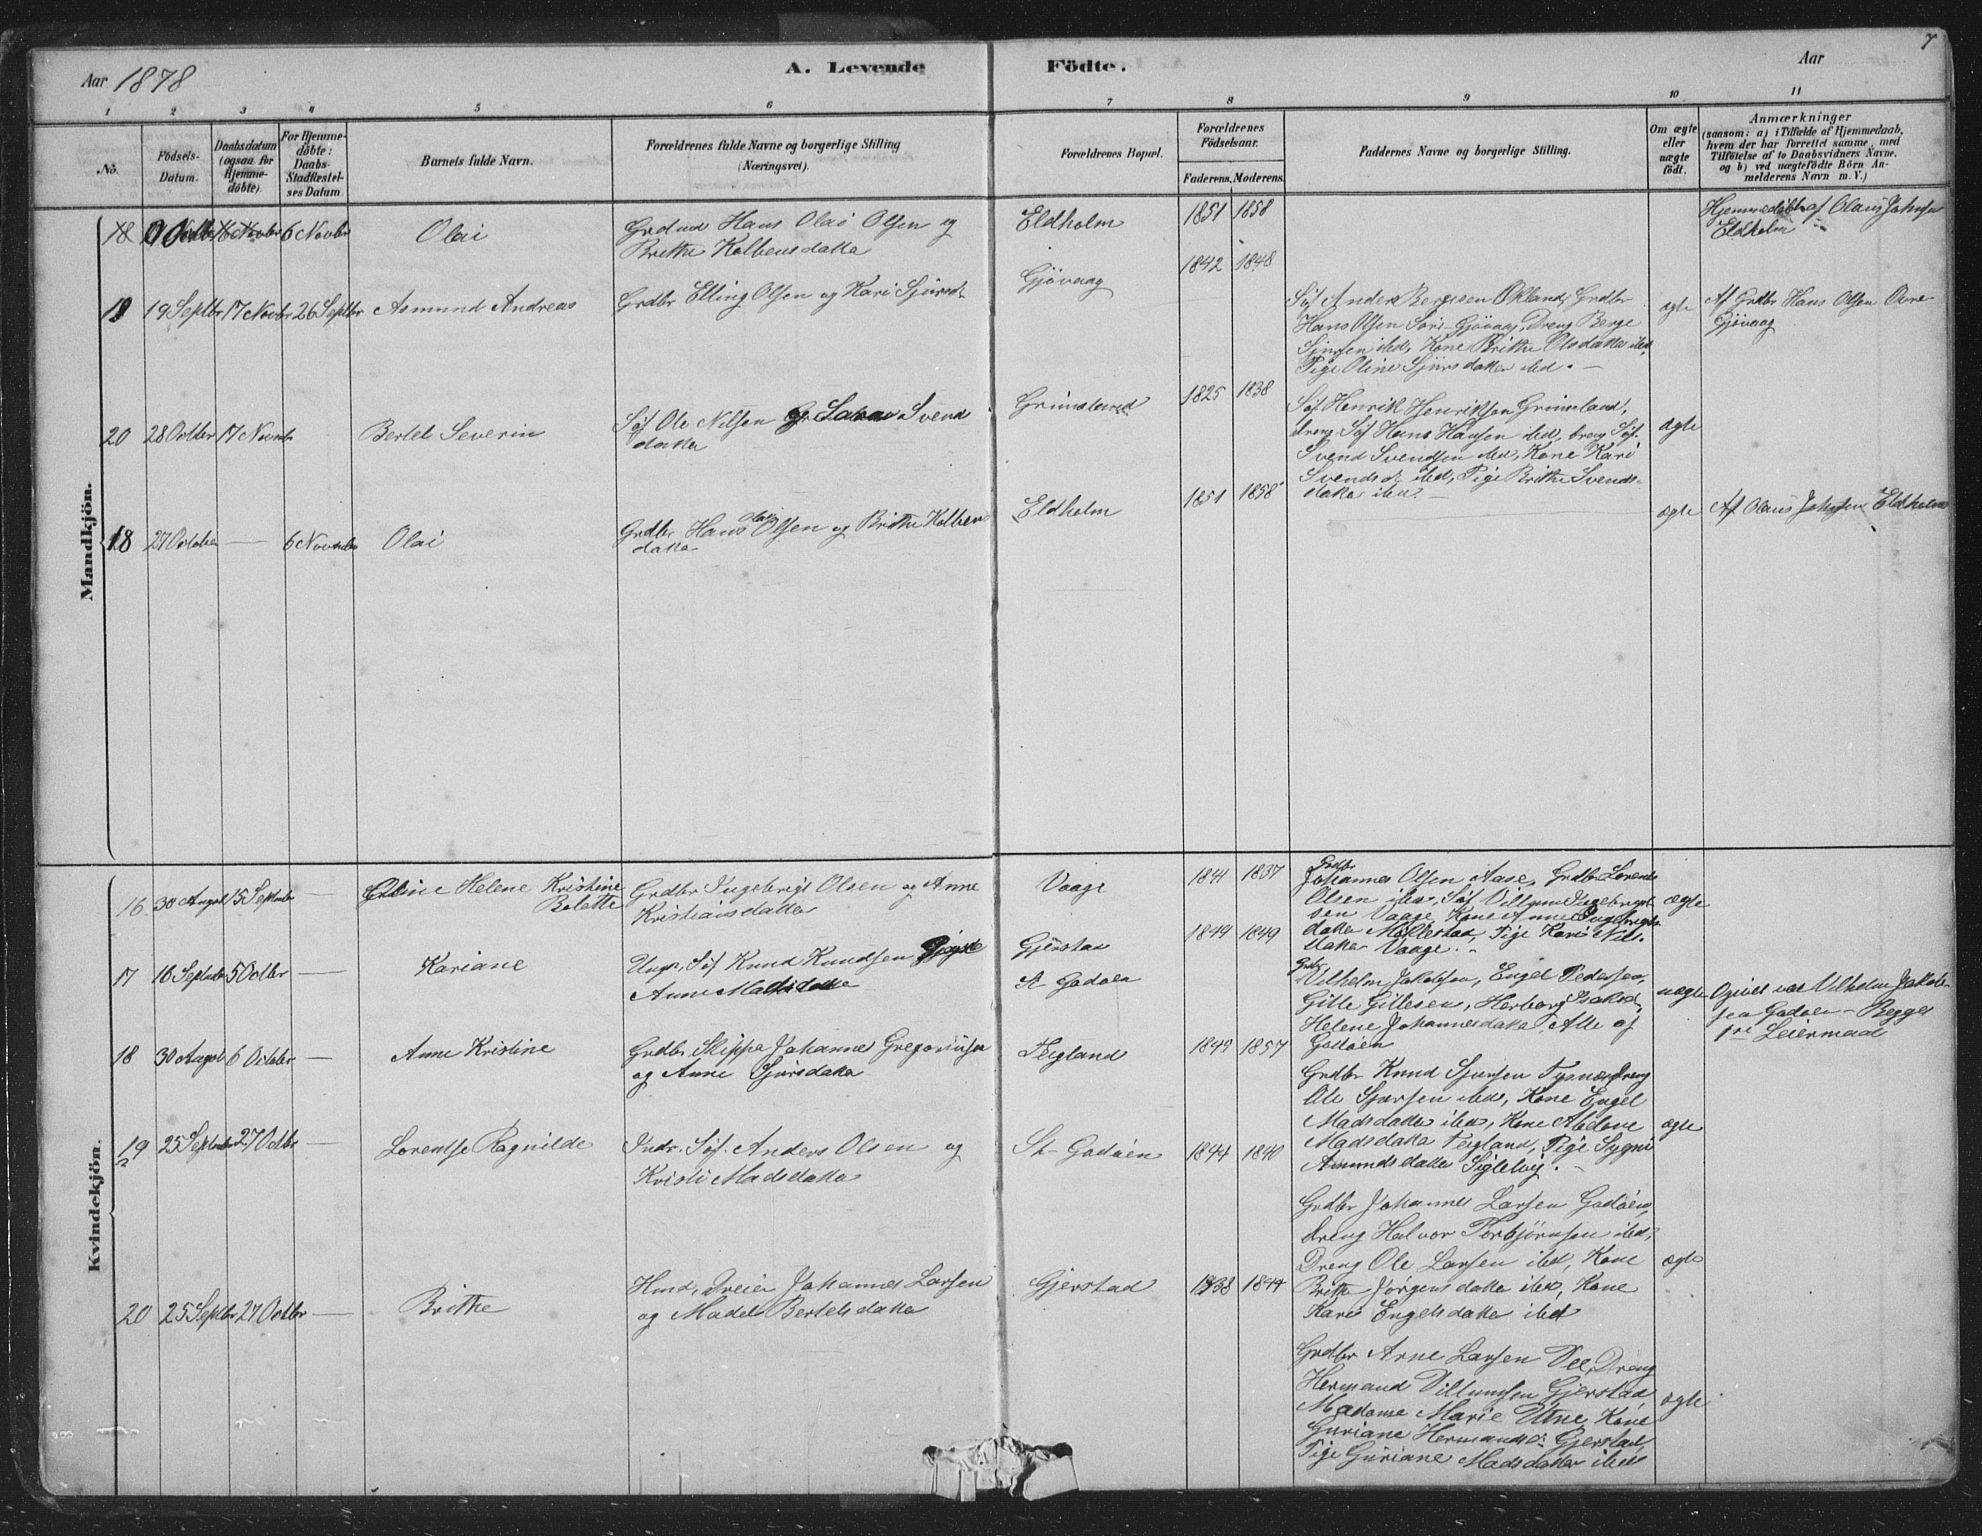 Aar 1878
A. Levende Födte.
Aar
7
1 2 3 4 5 6 7 8 9 10 11
No.
Födsels-Datum.
Daabsdatum (ogsaa for Hjemmedöbte).
For Hjemmedöbte: Daabs-Stadfæstelses Datum.
Barnets fulde Navn.
Forældrenes fulde Navne og borgerlige Stilling (Næringsvei).
Forældrenes Bopæl.
Forældrenes Födselsaar.
Faderens. Moderens.
Faddernes Navne og borgerlige Stilling.
Om ægte eller uægte födt.
Anmærkninger
(saasom: a) i Tilfælde af Hjemmedaab, hvem der har forrettet samme, med Tilföielse af to Daabsvidners Navne, og b) ved uægtefödte Börn Anmelderens Navn m. V.)
Mandkjön.
18 6 Novbr Olai
Hans Olai Olsen og
Brithe Kolbensdatter
Eldholm 1851 1858
Hjemmedöbt af Olaus Johnsen
Eldholm
19 19 Septbr 17 Novbr 26 Septbr Asmund Andreas
Grdbr Elling Olsen og Kari Sjursd.
Gjövaag 1842 1848
Anders Berge Ökland, Grdbr
Hans Olsen Gjövaag, Dreng Berge
Sjursen ibd, Kone Brithe Olsdatter ibd,
Pige Oline Sjursdatter ibd.
ægte
Af Grdbr Hans Olsen
Gjövaag
20 28 Octbr 17 Novbr Bertel Severin
Söf Ole Nilsen og Svends
datter
1825 1838
Söf Henrik Henriksen Grimsland,
dreng Söf Hans Hansen ibd, dreng Söf.
Svend Svendsen ibd, Kone Kari
Svendsd. ibd, Pige Brithe Svends-
datter ibd.
ægte
18 27 October 6 Novmbr Olai
Grdbr Hans Olai Olsen og Brithe Kolbens
datter
Eldholm 1851 1858
ægte
Af Olaus Johnsen Eldholm
Kvindekjön.
16 30 August 15 Septmbr Helene Kristine
Bolette
Grdbr Ingebrigt Olsen og Anne
Kristiansdatter
Vaage 1841 1837
Grdbr
Johannes Olsen Aase, Grdbr Lorents
Olsen ibd, Söf Villum Ingebrigt
sen Vaage, Kone Anne Ingebrigts
datter Möllestad, Pige Kari Nils-
datter Vaage.
ægte
17 16 Septmbr 5 Octbr Kariane
Ungk, Söf Knud Knudsen
Anne
Gjerstad
Godöen
1849 1849
Vilhelm Jakobsen, Engel Pedersen,
Gitle Gitlesen, Herborg Isaksd,
Helene Johannesdatter, Alle af
Godöen
uægte
Opgivet ved Vilhelm Jakob-
sen Godöen - Begges
1ste Leiermaal
18 30 August 6 October Anne Kristine
Grdbr, Skipper Johannes Gregoriusen
og Anne Sjursdatter
Teigland 1849 1857
Grdbr Knud Sjursen Tysnes, Dreng
Ole Sjursen ibd, Kone Engel
Madsdatter ibd, Kone Abelone
Madsdatter Teigland, Pige Sygni
Amundsdatter
ægte
19 25 Septmbr 27 Octbr Lorentse Ragnilde
Indr. Söf. Anders Olsen og
Kristi Madsdatter
St. Godöen 1844 1840
Grdbr Johannes Larsen Godöen,
dreng Halvor Torbjörnsen ibd,
Dreng Ole Larsen ibd, Kone
Brithe Jörgensdatter ibd, Kone
Kari Engelsdatter ibd
ægte
20 25 Septbr 27 Octbr Brithe
Husmd, Dreier Johannes Larsen
og Madel Bertelsdatter
Gjerstad 1838 1844
Grdbr Arne Larsen Vee, Dreng
Hermand Villumsen Gjerstad,
Madame Marie Utne, Kone
Guriane Hermandsd. Gjerstad,
Pige Guriane Madsdatter ibd
ægte